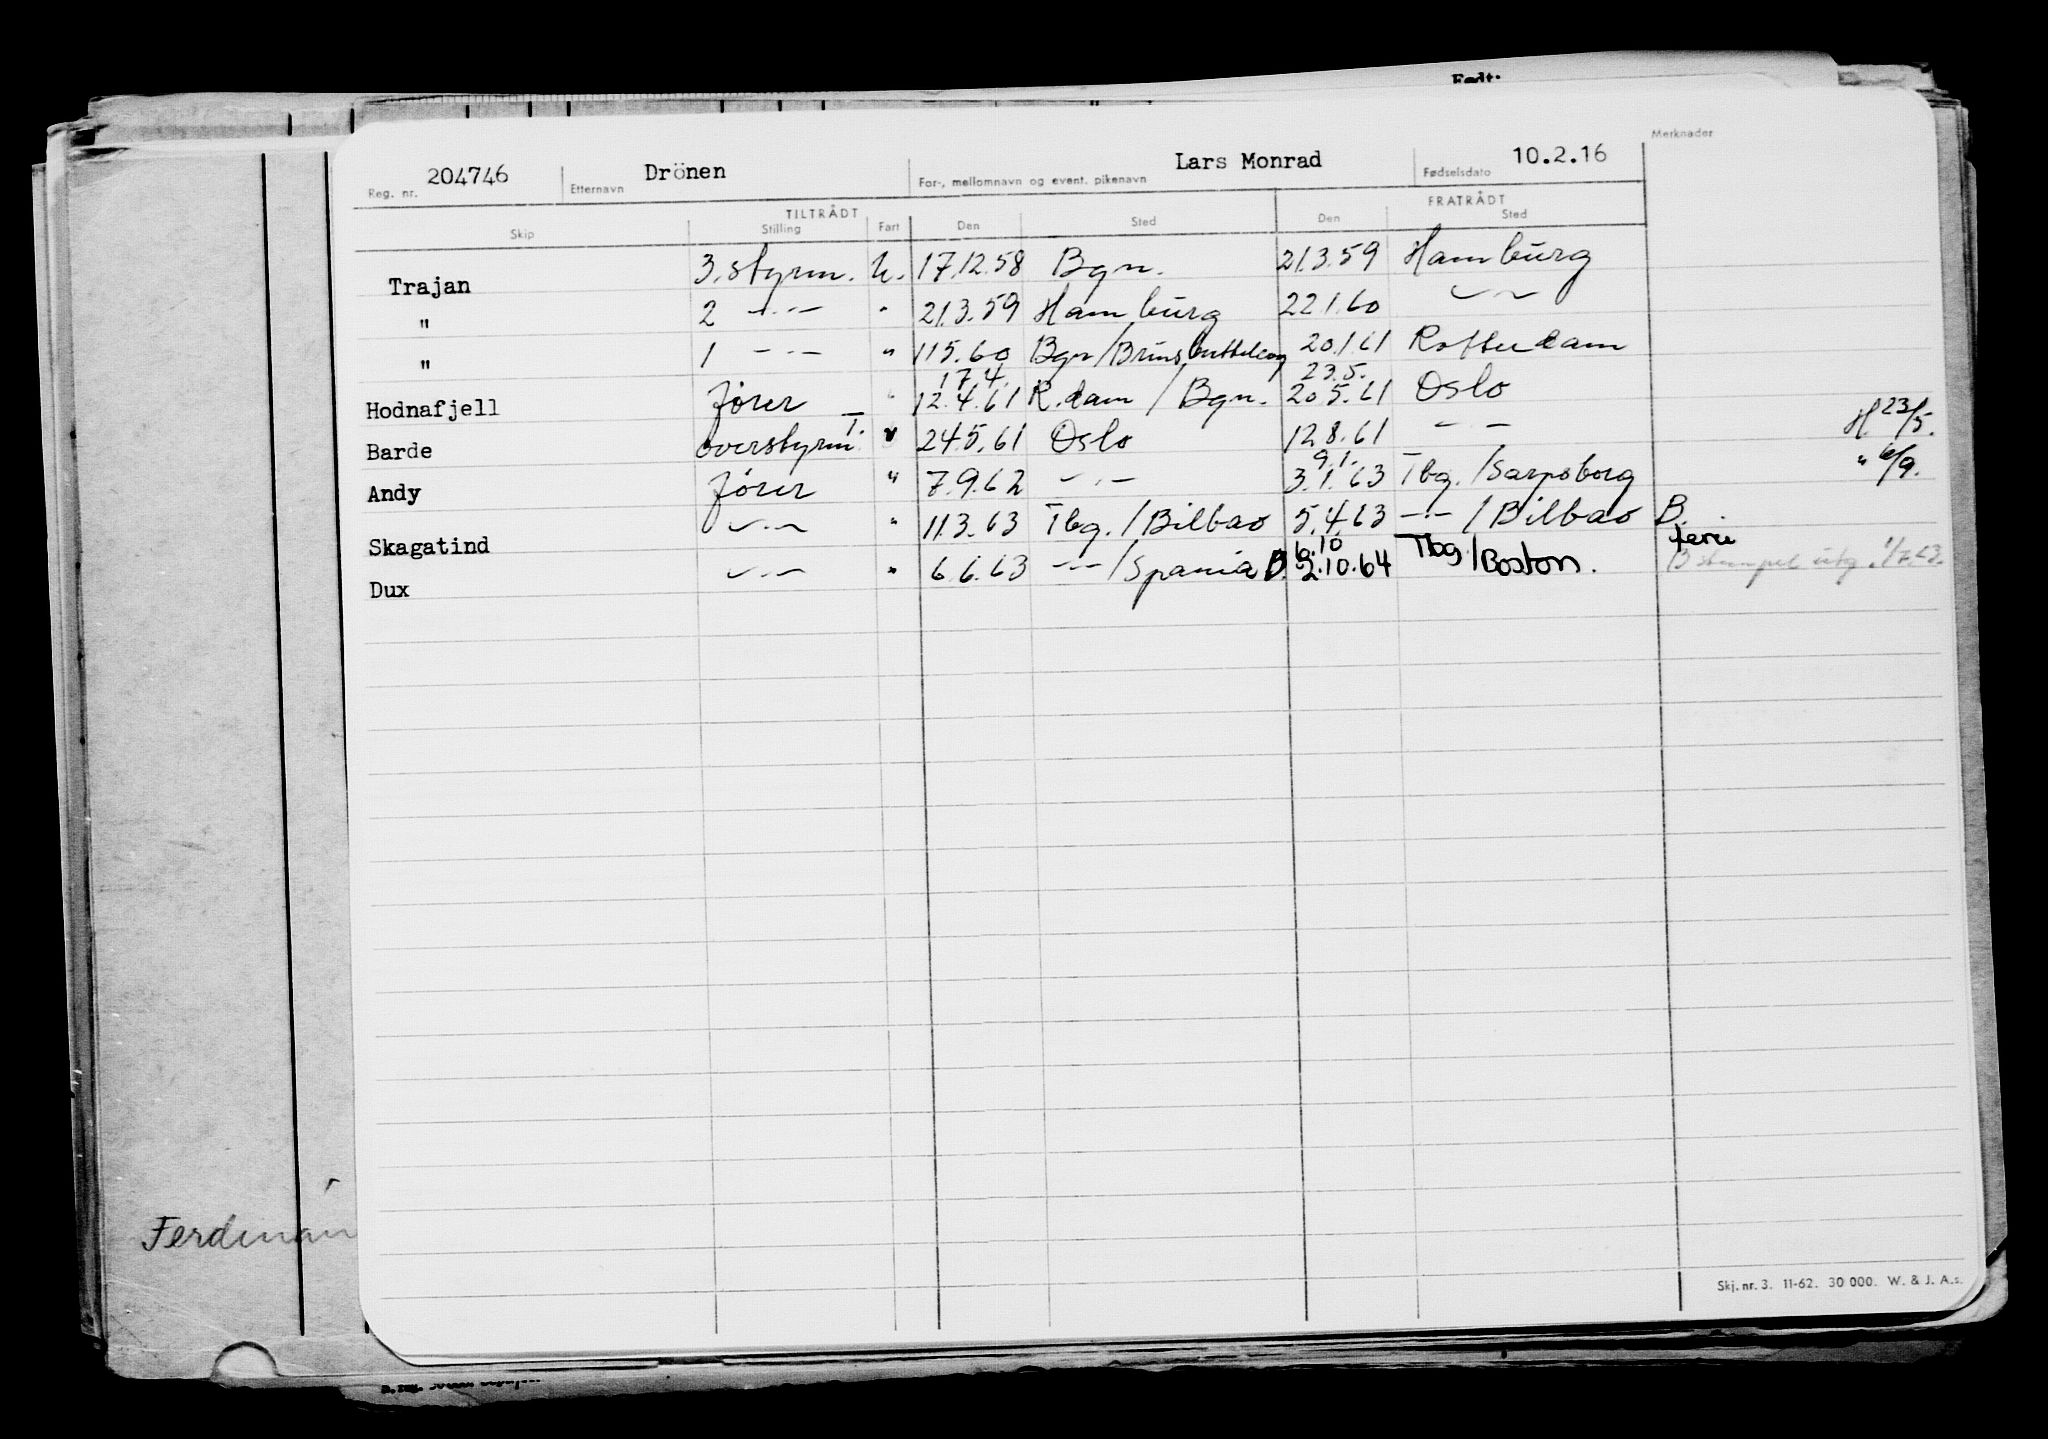 Født:
Merknader
Reg. nr. 204746 Etternavn Drönen For-, mellomnavn og event. pikenavn Lars Monrad Fødselsdato 10.2.16
TILTRÅDT FRATRÅDT
Skip Stilling Fart Den Sted Den Sted
Trajan 3. styrm. U. 17.12.58 Bgn. 21.3.59 Hamburg
" 2 -"- " 21.3.59 Hamburg 22.1.60 -"-
" 1 -"- " 11.5.60 Bgn/Brunsbuttelcog 20.1.61 Rotterdam
17.4. 23.5.
Hodnafjell fører " 12.4.61 R.dam / Bgn. 20.5.61 Oslo
Barde overstyrm. T. " 24.5.61 Oslo 12.8.61 -"- H. 23/5.
9.1.
Andy fører " 7.9.62 -"- 3.1.63 Tbg./Sarpsborg " 6/9.
Skagatind -"- " 11.3.63 Tbg./Bilbao 5.4.63 -"-/Bilbao B. ferie
6.10
Dux -"- " 6.6.63 -"-/Spania B. 2.10.64 Tbg./Boston. B stempel utg. 1/7.63.
Ferdinan
Skj. nr. 3. 11-62. 30 000. W. & J. A.s.